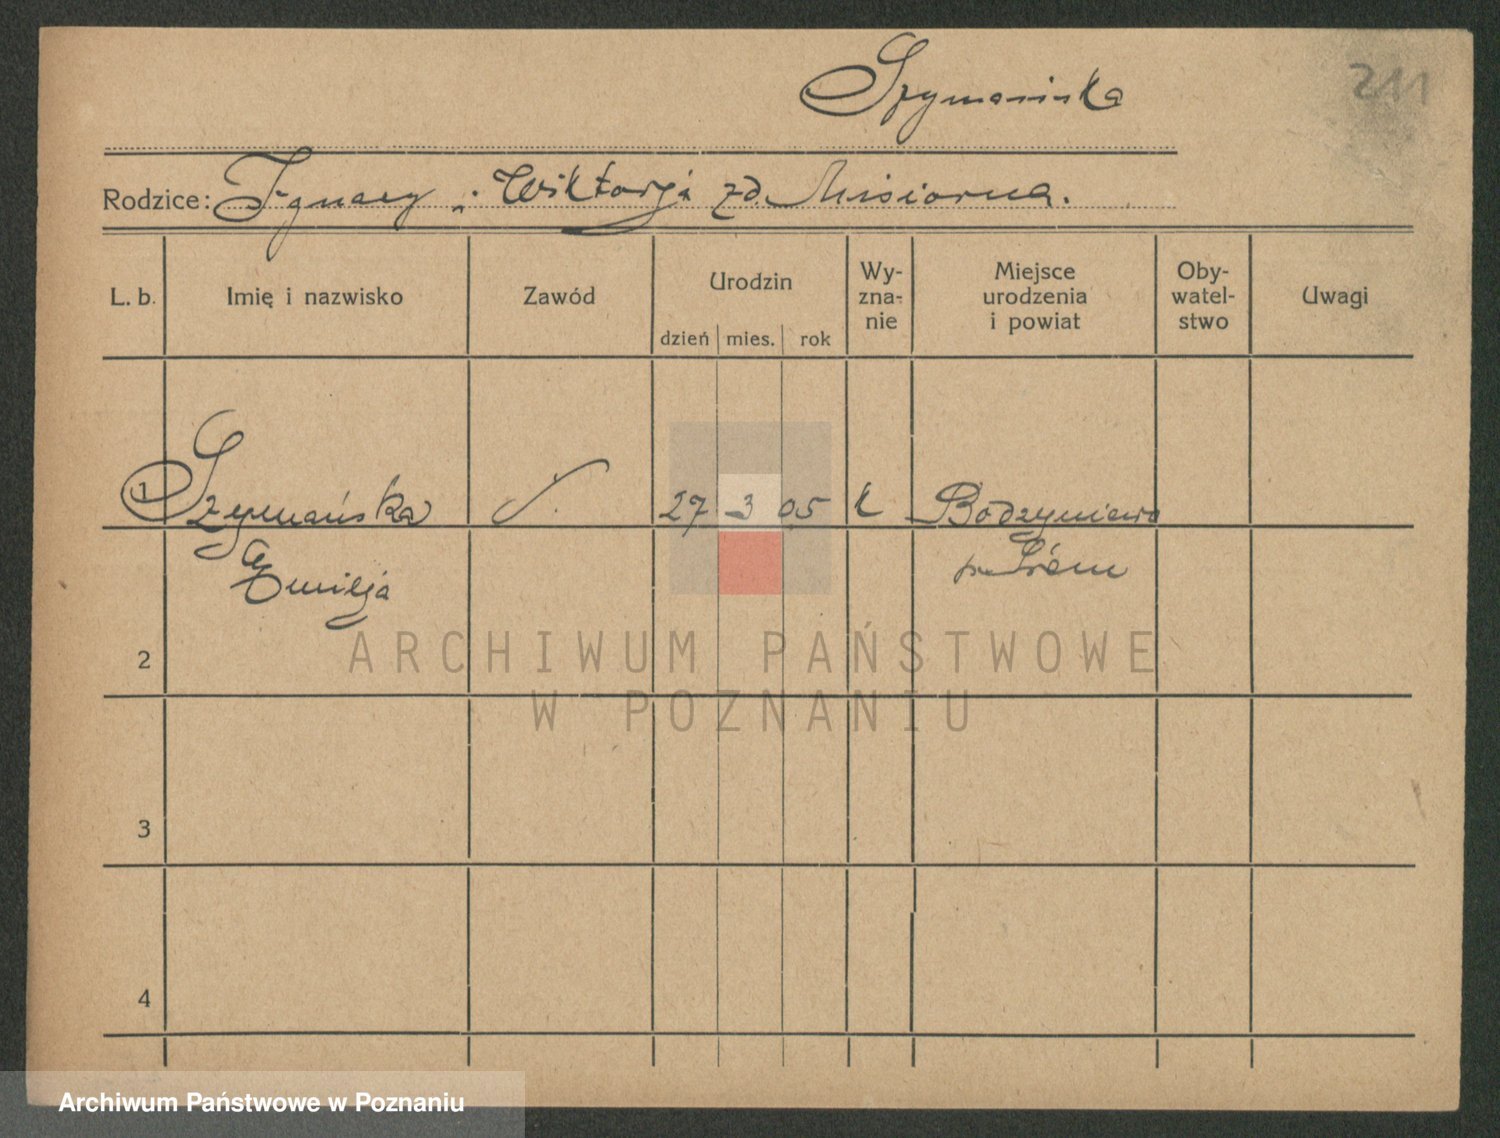 Szymańska
211
Rodzice: Ignacy i Wiktorja zd. Misiorna.
L. b. Imię i nazwisko Zawód Urodzin Wy-zna-nie Miejsce urodzenia i powiat Oby-watel-stwo Uwagi
dzień mies. rok
1 Szymańska 27 3 05 k Bodzyniewo
Emilja pow. Śrem
2
3
4
ARCHIWUM PAŃSTWOWE
W POZNANIU
Archiwum Państwowe w Poznaniu